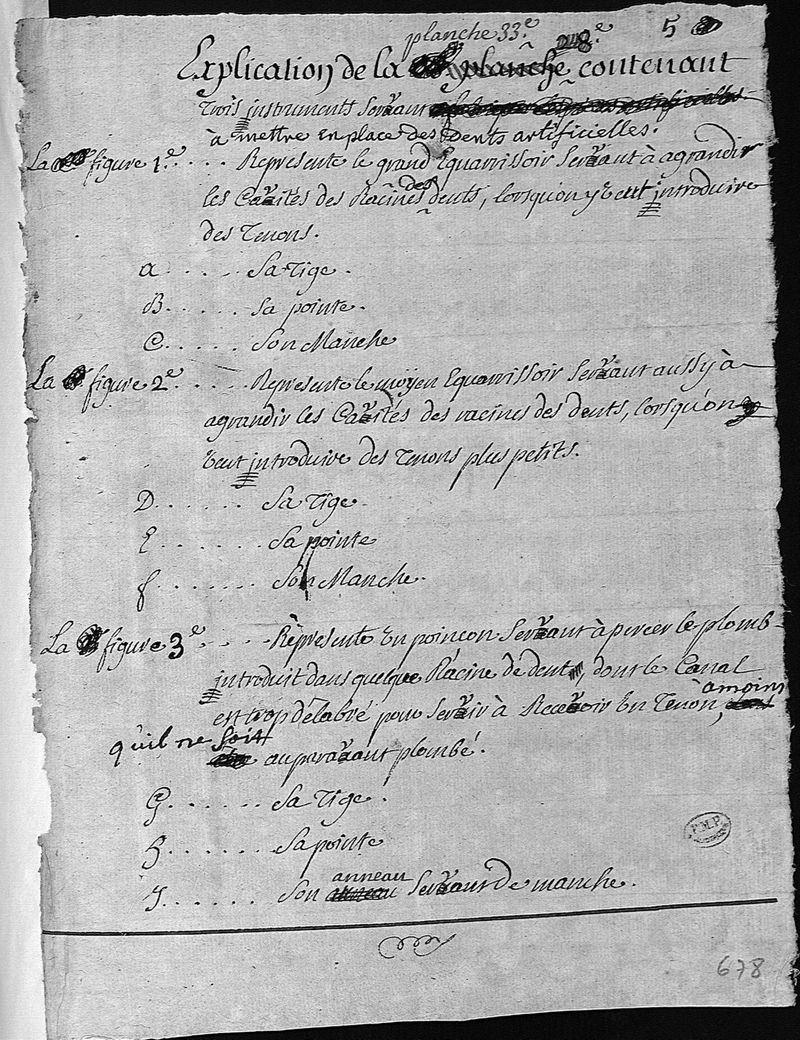 planche 33.e 28.e 5
Explication de la planche contenant
trois instruments servant
à mettre en place des dents artificielles.
La figure 1.e .... Represente le grand Equarrissoir servant à agrandir
les Cavités des Racines des dents, lorsqu'on y veut introduire
des Tenons.
a ..... Sa Tige.
B ..... Sa pointe.
C ..... Son Manche
La figure 2.e ..... Represente le moyen Equarrissoir servant aussy à
agrandir les Cavités des racines des dents, lorsqu'on y
veut introduire des Tenons plus petits.
D ...... Sa Tige.
E ...... Sa pointe
f ...... Son Manche.
La figure 3.e .... Represente Un poinçon servant à percer le plomb
introduit dans quelque Racine de dent, dont le Canal
est trop délabré pour servir à Recevoir Un Tenon, amoins
qu'il ne soit auparavant plombé.
G ...... Sa Tige.
H ...... Sa pointe
J ...... Son anneau servant De manche.
F.M.P.
678